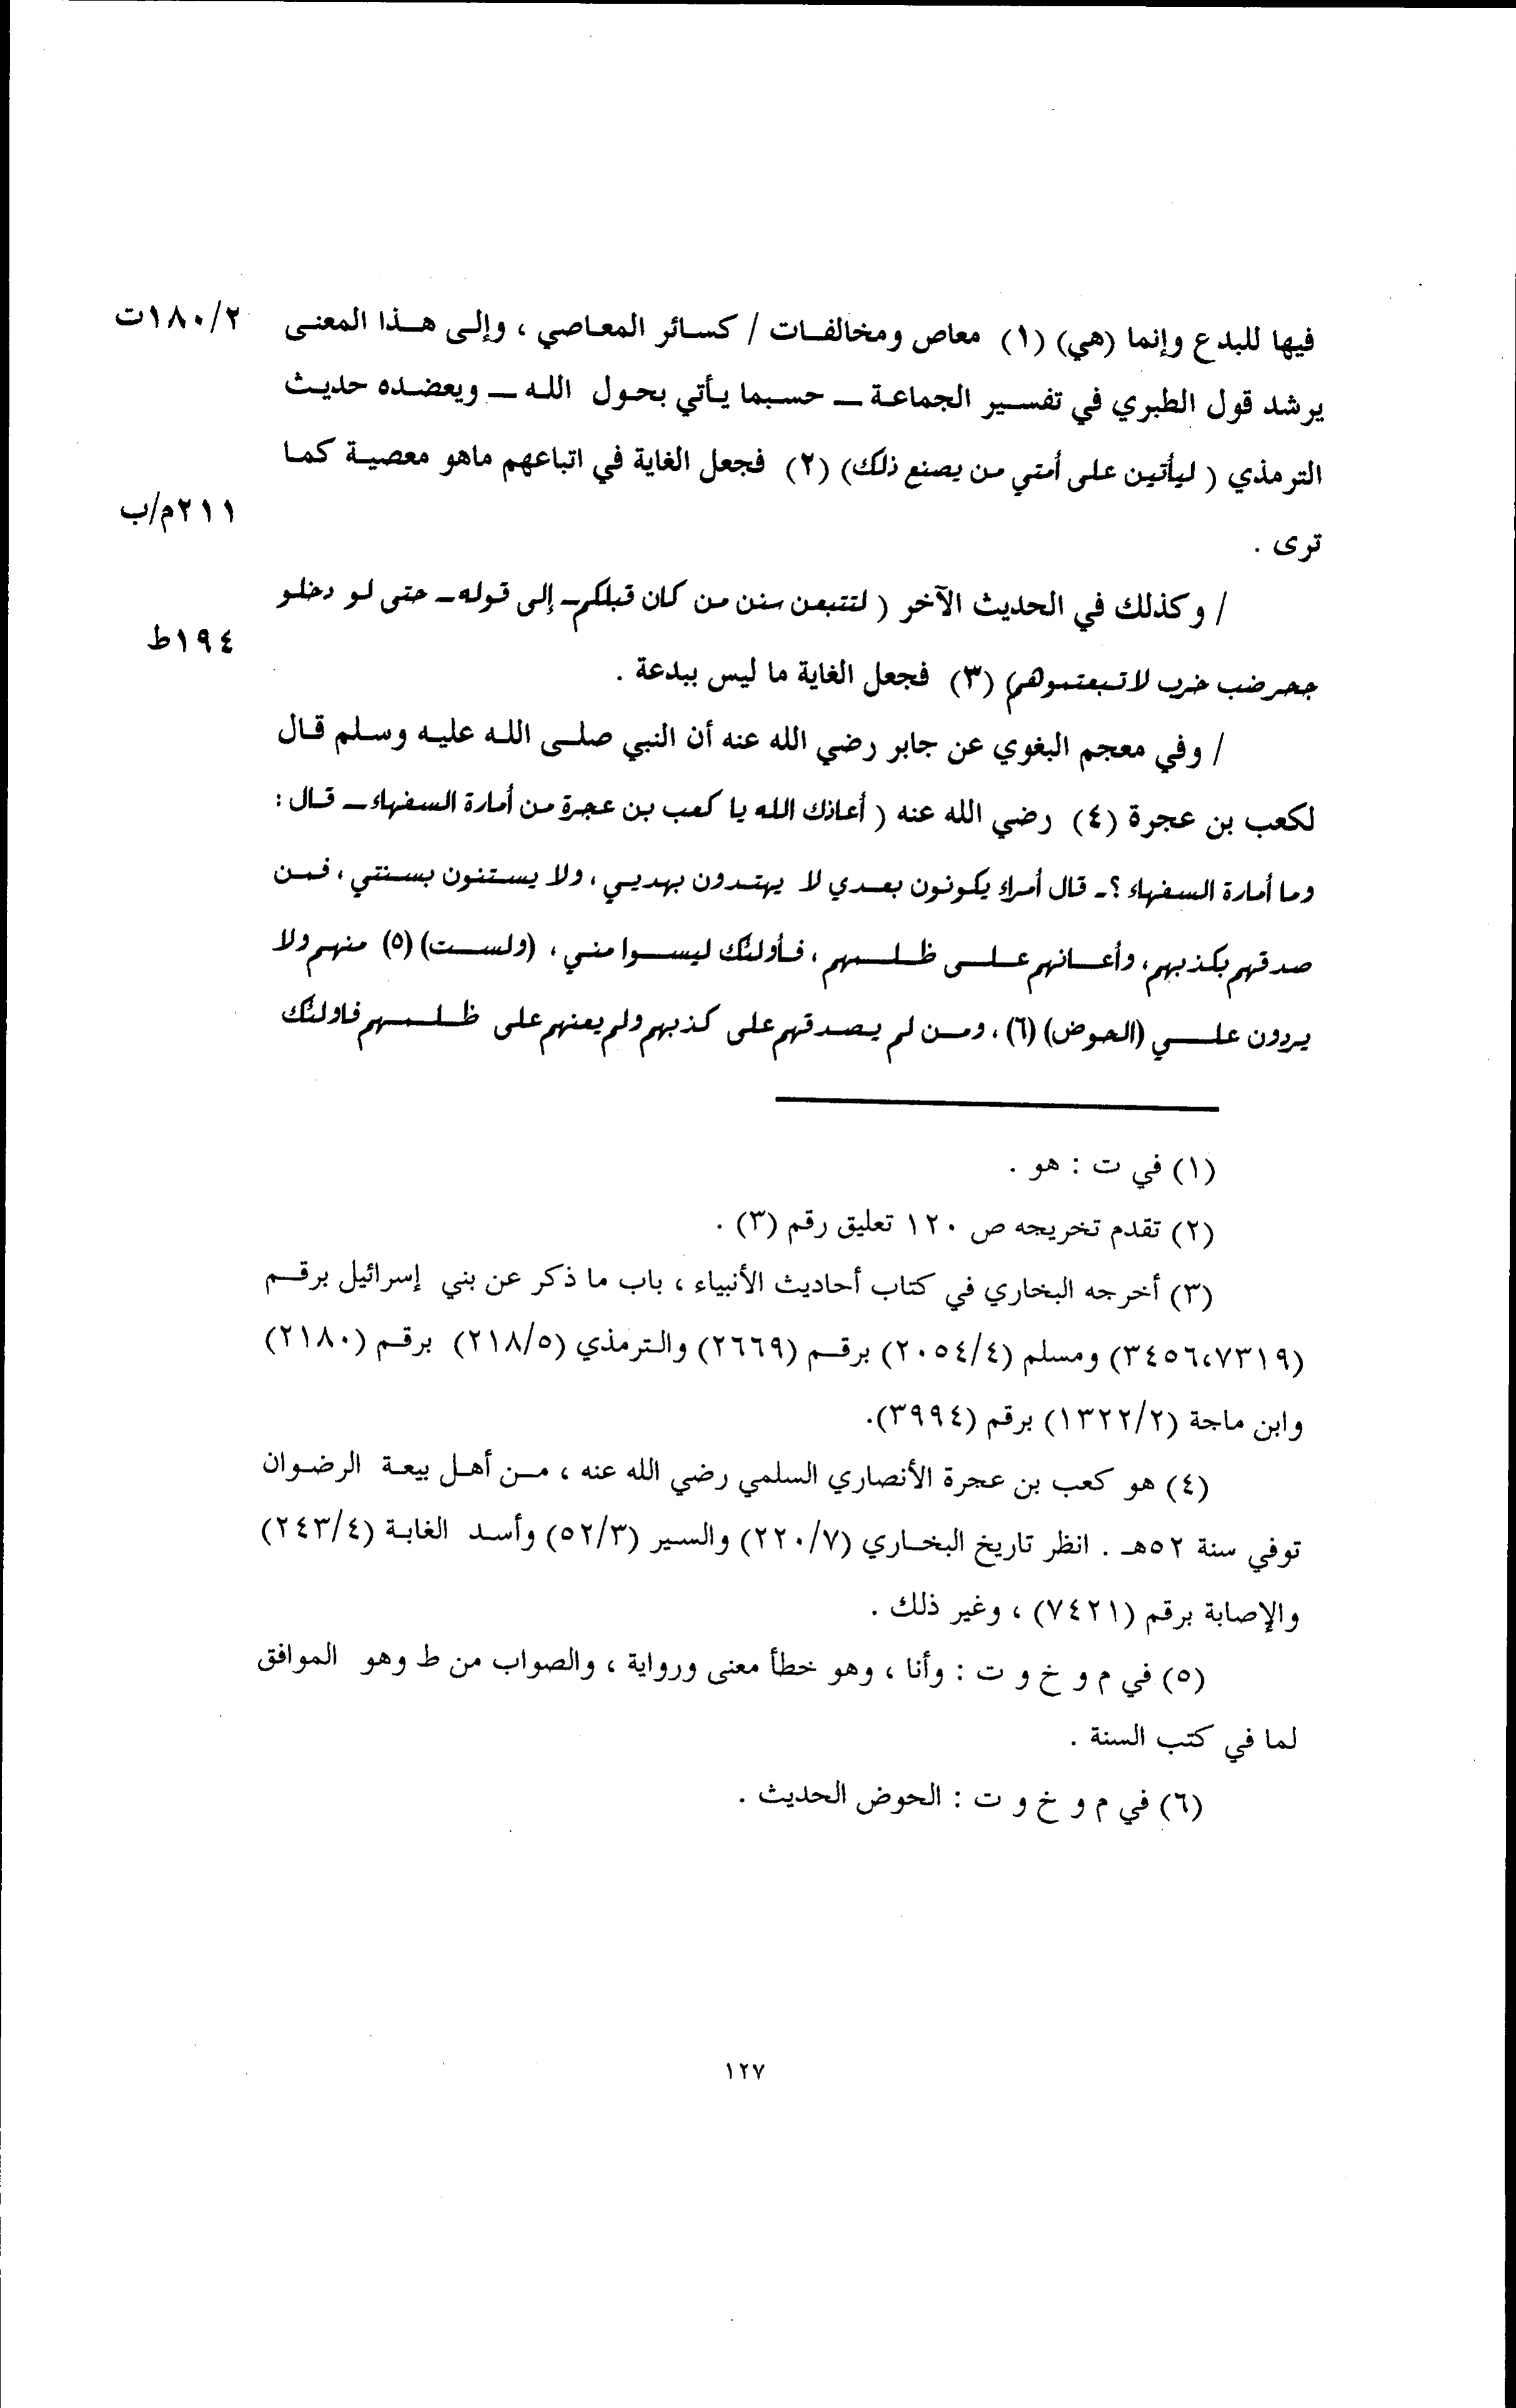 فيها للبدع وإنما (هي) (١) معاص ومخالفات / كسائر المعاصي ، وإلى هذا المعنى ١٨٠/٢ت
يرشد قول الطبري في تفسير الجماعة ــ حسبما يأتي بحول الله ــ ويعضده حديث
الترمذي ( ليأتين على أمتي من يصنع ذلك) (٢) فجعل الغاية في اتباعهم ماهو معصية كما
٢١١م/ب
ترى .
/ وكذلك في الحديث الآخر ( لتتبعن سنن من كان قبلكم ــ إلى قوله ــ حتى لو دخلو
١٩٤ط
جحر ضب خرب لاتبعتموهم) (٣) فجعل الغاية ما ليس ببدعة .
/ وفي معجم البغوي عن جابر رضي الله عنه أن النبي صلى الله عليه وسلم قال
لكعب بن عجرة (٤) رضي الله عنه ( أعاذك الله يا كعب بن عجرة من أمارة السفهاء ــ قال :
وما أمارة السفهاء ؟ ـ قال أمراء يكونون بعدي لا يهتدون بهديي ، ولا يستنون بسنتي ، فمن
صدقهم بكذبهم ، وأعانهم على ظلمهم ، فأولئك ليسوا مني ، (ولست) (٥) منهم ولا
يردون علي (الحوض) (٦) ، ومن لم يصدقهم على كذبهم ولم يعنهم على ظلمهم فاولئك
(١) في ت : هو .
(٢) تقدم تخريجه ص ١٢٠ تعليق رقم (٣) .
(٣) أخرجه البخاري في كتاب أحاديث الأنبياء ، باب ما ذكر عن بني إسرائيل برقم
(٣٤٥٦،٧٣١٩) ومسلم (٢٠٥٤/٤) برقم (٢٦٦٩) والترمذي (٢١٨/٥) برقم (٢١٨٠)
وابن ماجة (١٣٢٢/٢) برقم (٣٩٩٤).
(٤) هو كعب بن عجرة الأنصاري السلمي رضي الله عنه ، من أهل بيعة الرضوان
توفي سنة ٥٢هـ . انظر تاريخ البخاري (٢٢٠/٧) والسير (٥٢/٣) وأسد الغابة (٢٤٣/٤)
والإصابة برقم (٧٤٢١) ، وغير ذلك .
(٥) في م و خ و ت : وأنا ، وهو خطأ معنى ورواية ، والصواب من ط وهو الموافق
لما في كتب السنة .
(٦) في م و خ و ت : الحوض الحديث .
١٢٧